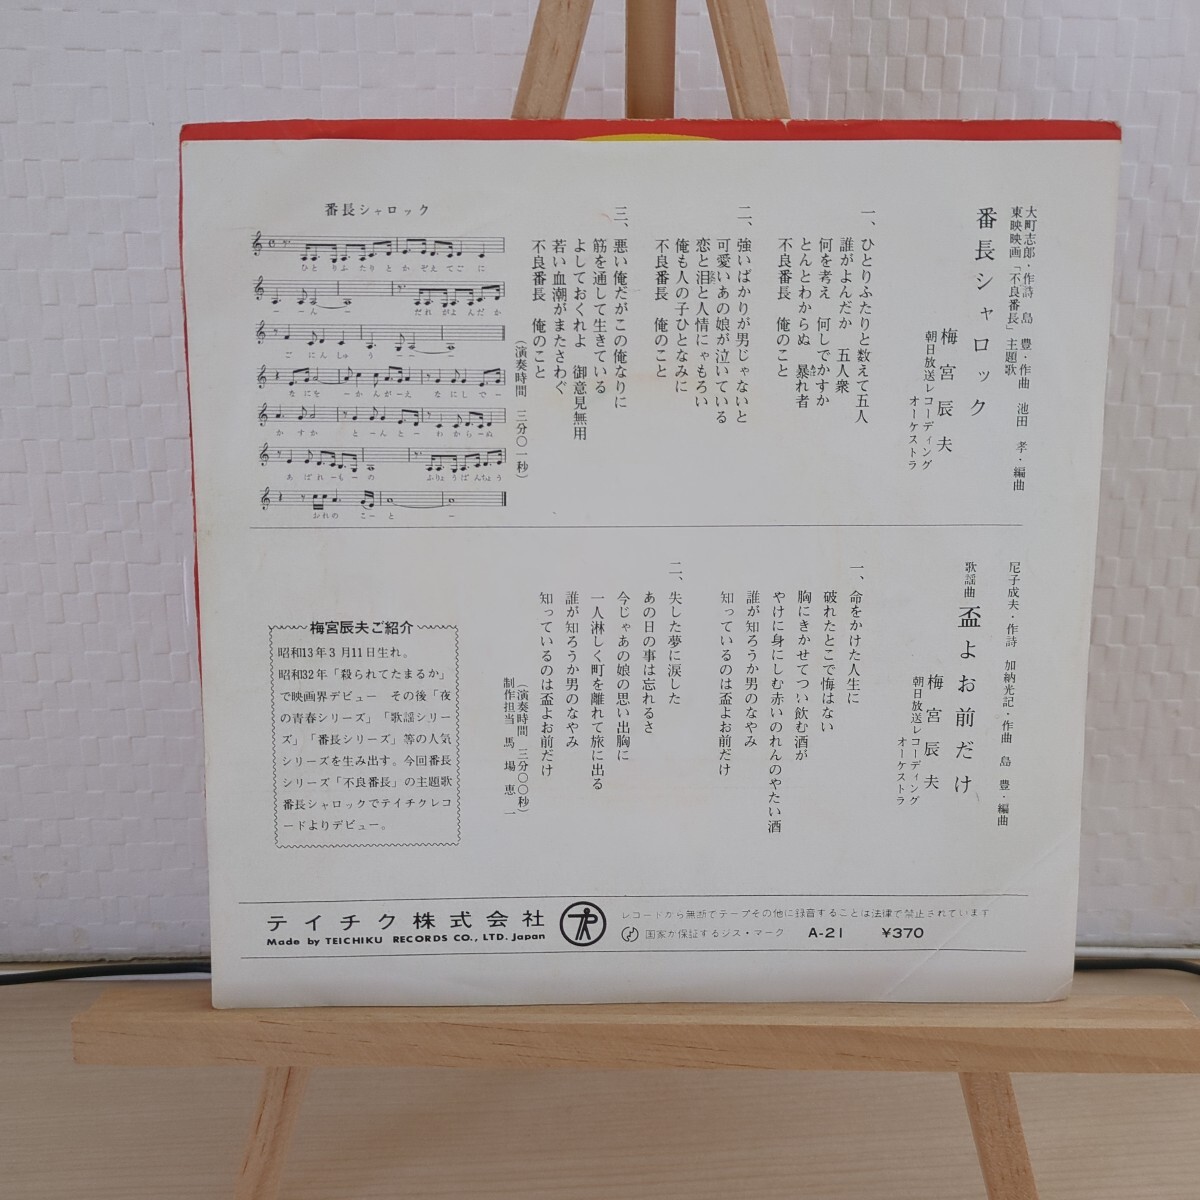 東映映画「不良番長」主題歌
番長シャロック
大町志郎・作詩 島 豊・作曲 池田 孝・編曲
梅宮辰夫
朝日放送レコーディング
オーケストラ
一、ひとりふたりと数えて五人
誰がよんだか 五人衆
何を考え 何しでかすか
とんとわからぬ 暴れ者
不良番長 俺のこと
二、強いばかりが男じゃないと
可愛いあの娘が泣いている
恋と泪と人情にゃもろい
俺も人の子ひとなみに
不良番長 俺のこと
三、悪い俺だがこの俺なりに
筋を通して生きている
よしておくれよ 御意見無用
若い血潮がまたさわぐ
不良番長 俺のこと
(演奏時間 三分〇一秒)
番長シャロック
ひとりふたりとかぞえてごに
ーーんー だれがよんだか
ごにんしゅうーーー
なにをーかんがーえ なにしでー
かすか とーんとー わからーぬ
あばれーもーの ふりょうばんちょう
おれの こーと ー
歌謡曲 盃よお前だけ
尼子成夫・作詩 加納光記・作曲 島 豊・編曲
梅宮辰夫
朝日放送レコーディング
オーケストラ
一、命をかけた人生に
破れたとこで悔はない
胸にきかせてつい飲む酒が
やけに身にしむ赤いのれんのやたい酒
誰が知ろうか男のなやみ
知っているのは盃よお前だけ
二、失した夢に涙した
あの日の事は忘れるさ
今じゃあの娘の思い出胸に
一人淋しく町を離れて旅に出る
誰が知ろうか男のなやみ
知っているのは盃よお前だけ
(演奏時間 三分〇〇秒)
制作担当 馬場恵一
梅宮辰夫ご紹介
昭和13年3月11日生れ。
昭和32年「殺られてたまるか」
で映画界デビュー その後「夜
の青春シリーズ」「歌謡シリー
ズ」「番長シリーズ」等の人気
シリーズを生み出す。今回番長
シリーズ「不良番長」の主題歌
番長シャロックでテイチクレコ
ードよりデビュー。
テイチク株式会社
Made by TEICHIKU RECORDS CO., LTD. Japan
レコードから無断でテープその他に録音することは法律で禁止されています
国家が保証するジス・マーク A-21 ¥370